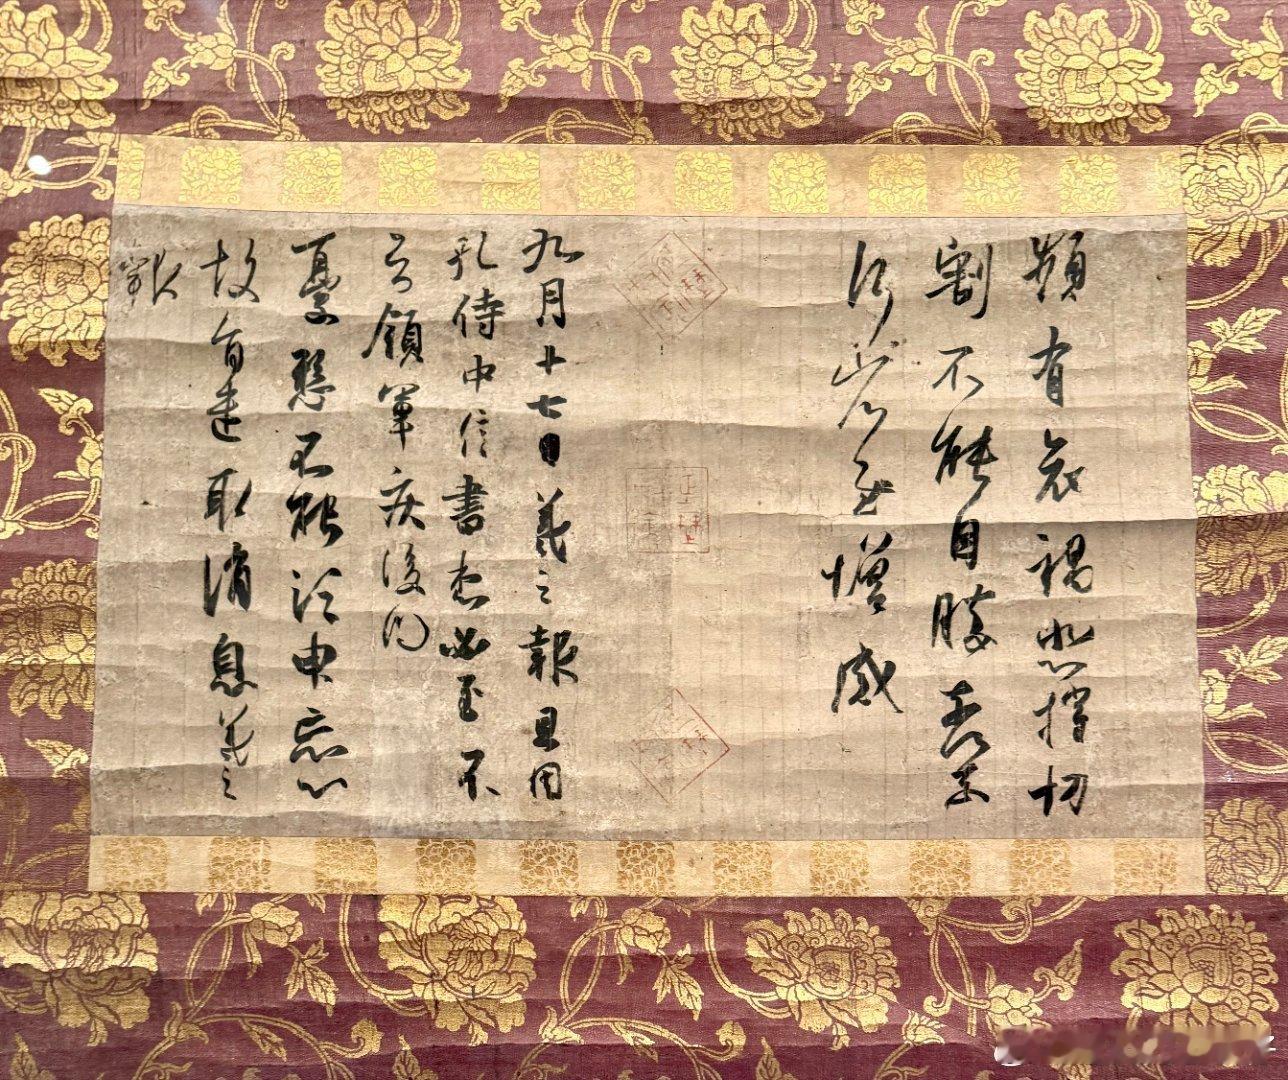 頻有哀禍悲摧切
割不能自勝奈何奈
何省慰增感
九月廿七日羲之報且因
孔侍中信書想必至不
知領軍疾後問
憂懸不能須臾忘心
故旨遣取消息羲之
報